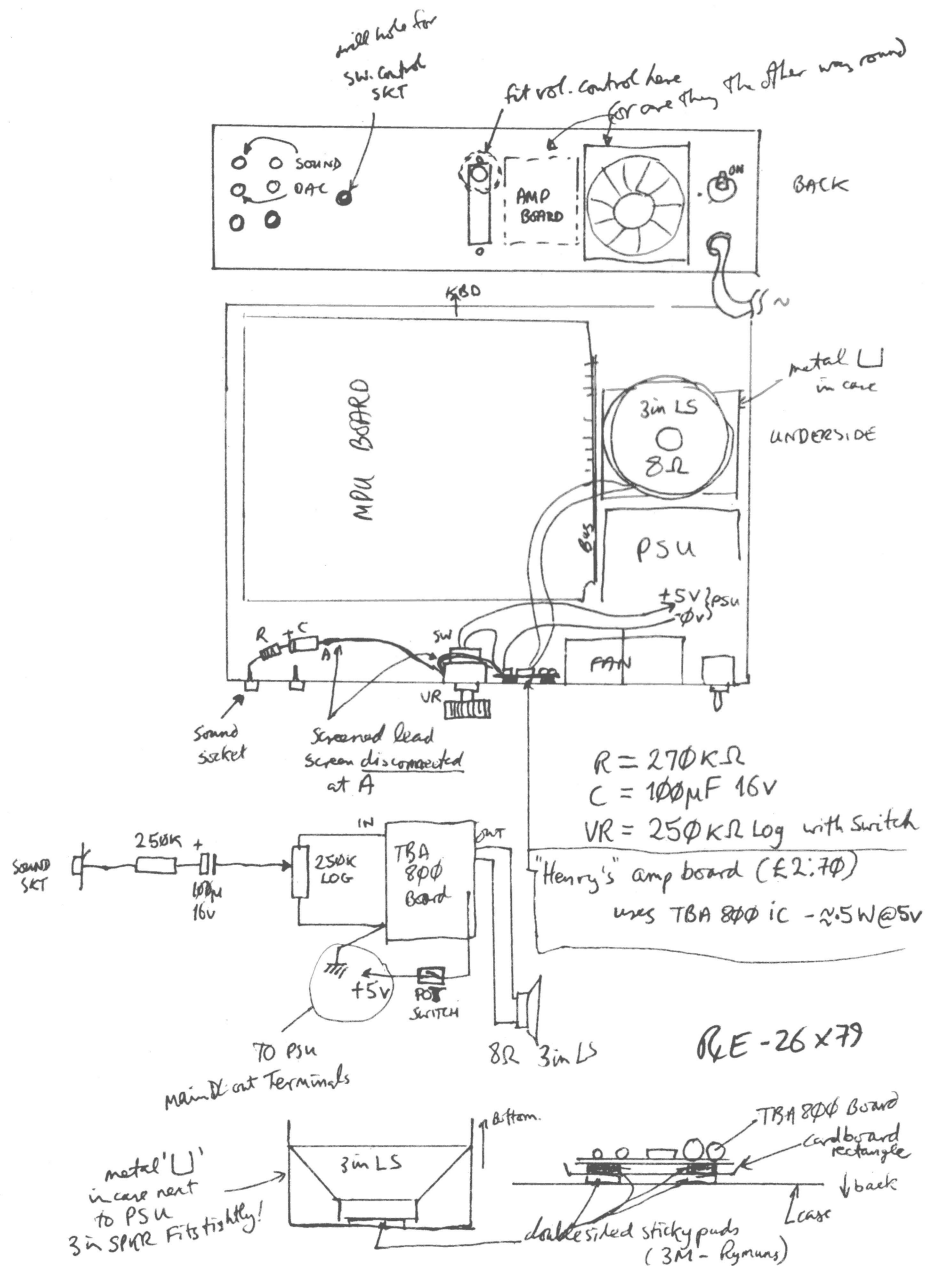 drill hole for
SW. control
SKT
fit vol. control here
(or are they the other way round
SOUND
DAC
AMP
BOARD
ON
BACK
~
KBD
MPU BOARD
Bus
3in LS
8Ω
metal ⊔
in case
UNDERSIDE
PSU
+5V } PSU
-0̸v
R
+ C
A
SW
VR
FAN
Sound
socket
Screened lead
screen disconnected
at A
R = 270̸KΩ
C = 10̸0̸μF 16v
VR = 250̸KΩ Log with Switch
"Henry's" amp board (£2:70̸)
uses TBA 80̸0̸ ic - ≈.5W@5v
SOUND
SKT
250̸K
+
10̸0̸μ
16v
250̸K
LOG
IN
TBA
80̸0̸
Board
OUT
+5v
POT
SWITCH
8Ω 3in LS
TO PSU
main out Terminals
RE-26 X 79
metal '⊔'
in case next
to PSU
3in SPKR Fits tightly!
3in LS
Bottom.
TBA 80̸0̸ Board
cardboard
rectangle
back
case
double sided sticky pads
(3M - Rymans)